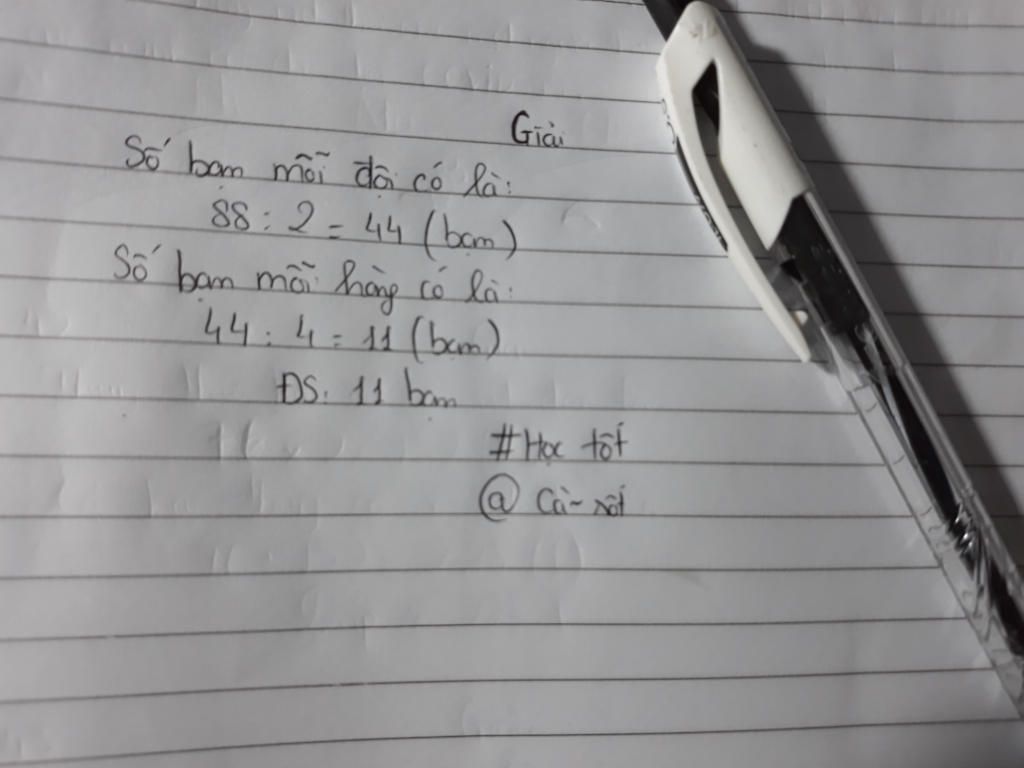 Giải
Số bạn mỗi đội có là:
88 : 2 = 44 (bạn)
Số bạn mỗi hàng có là:
44 : 4 = 11 (bạn)
ĐS: 11 bạn
#Học tốt
@ Cà-rốt